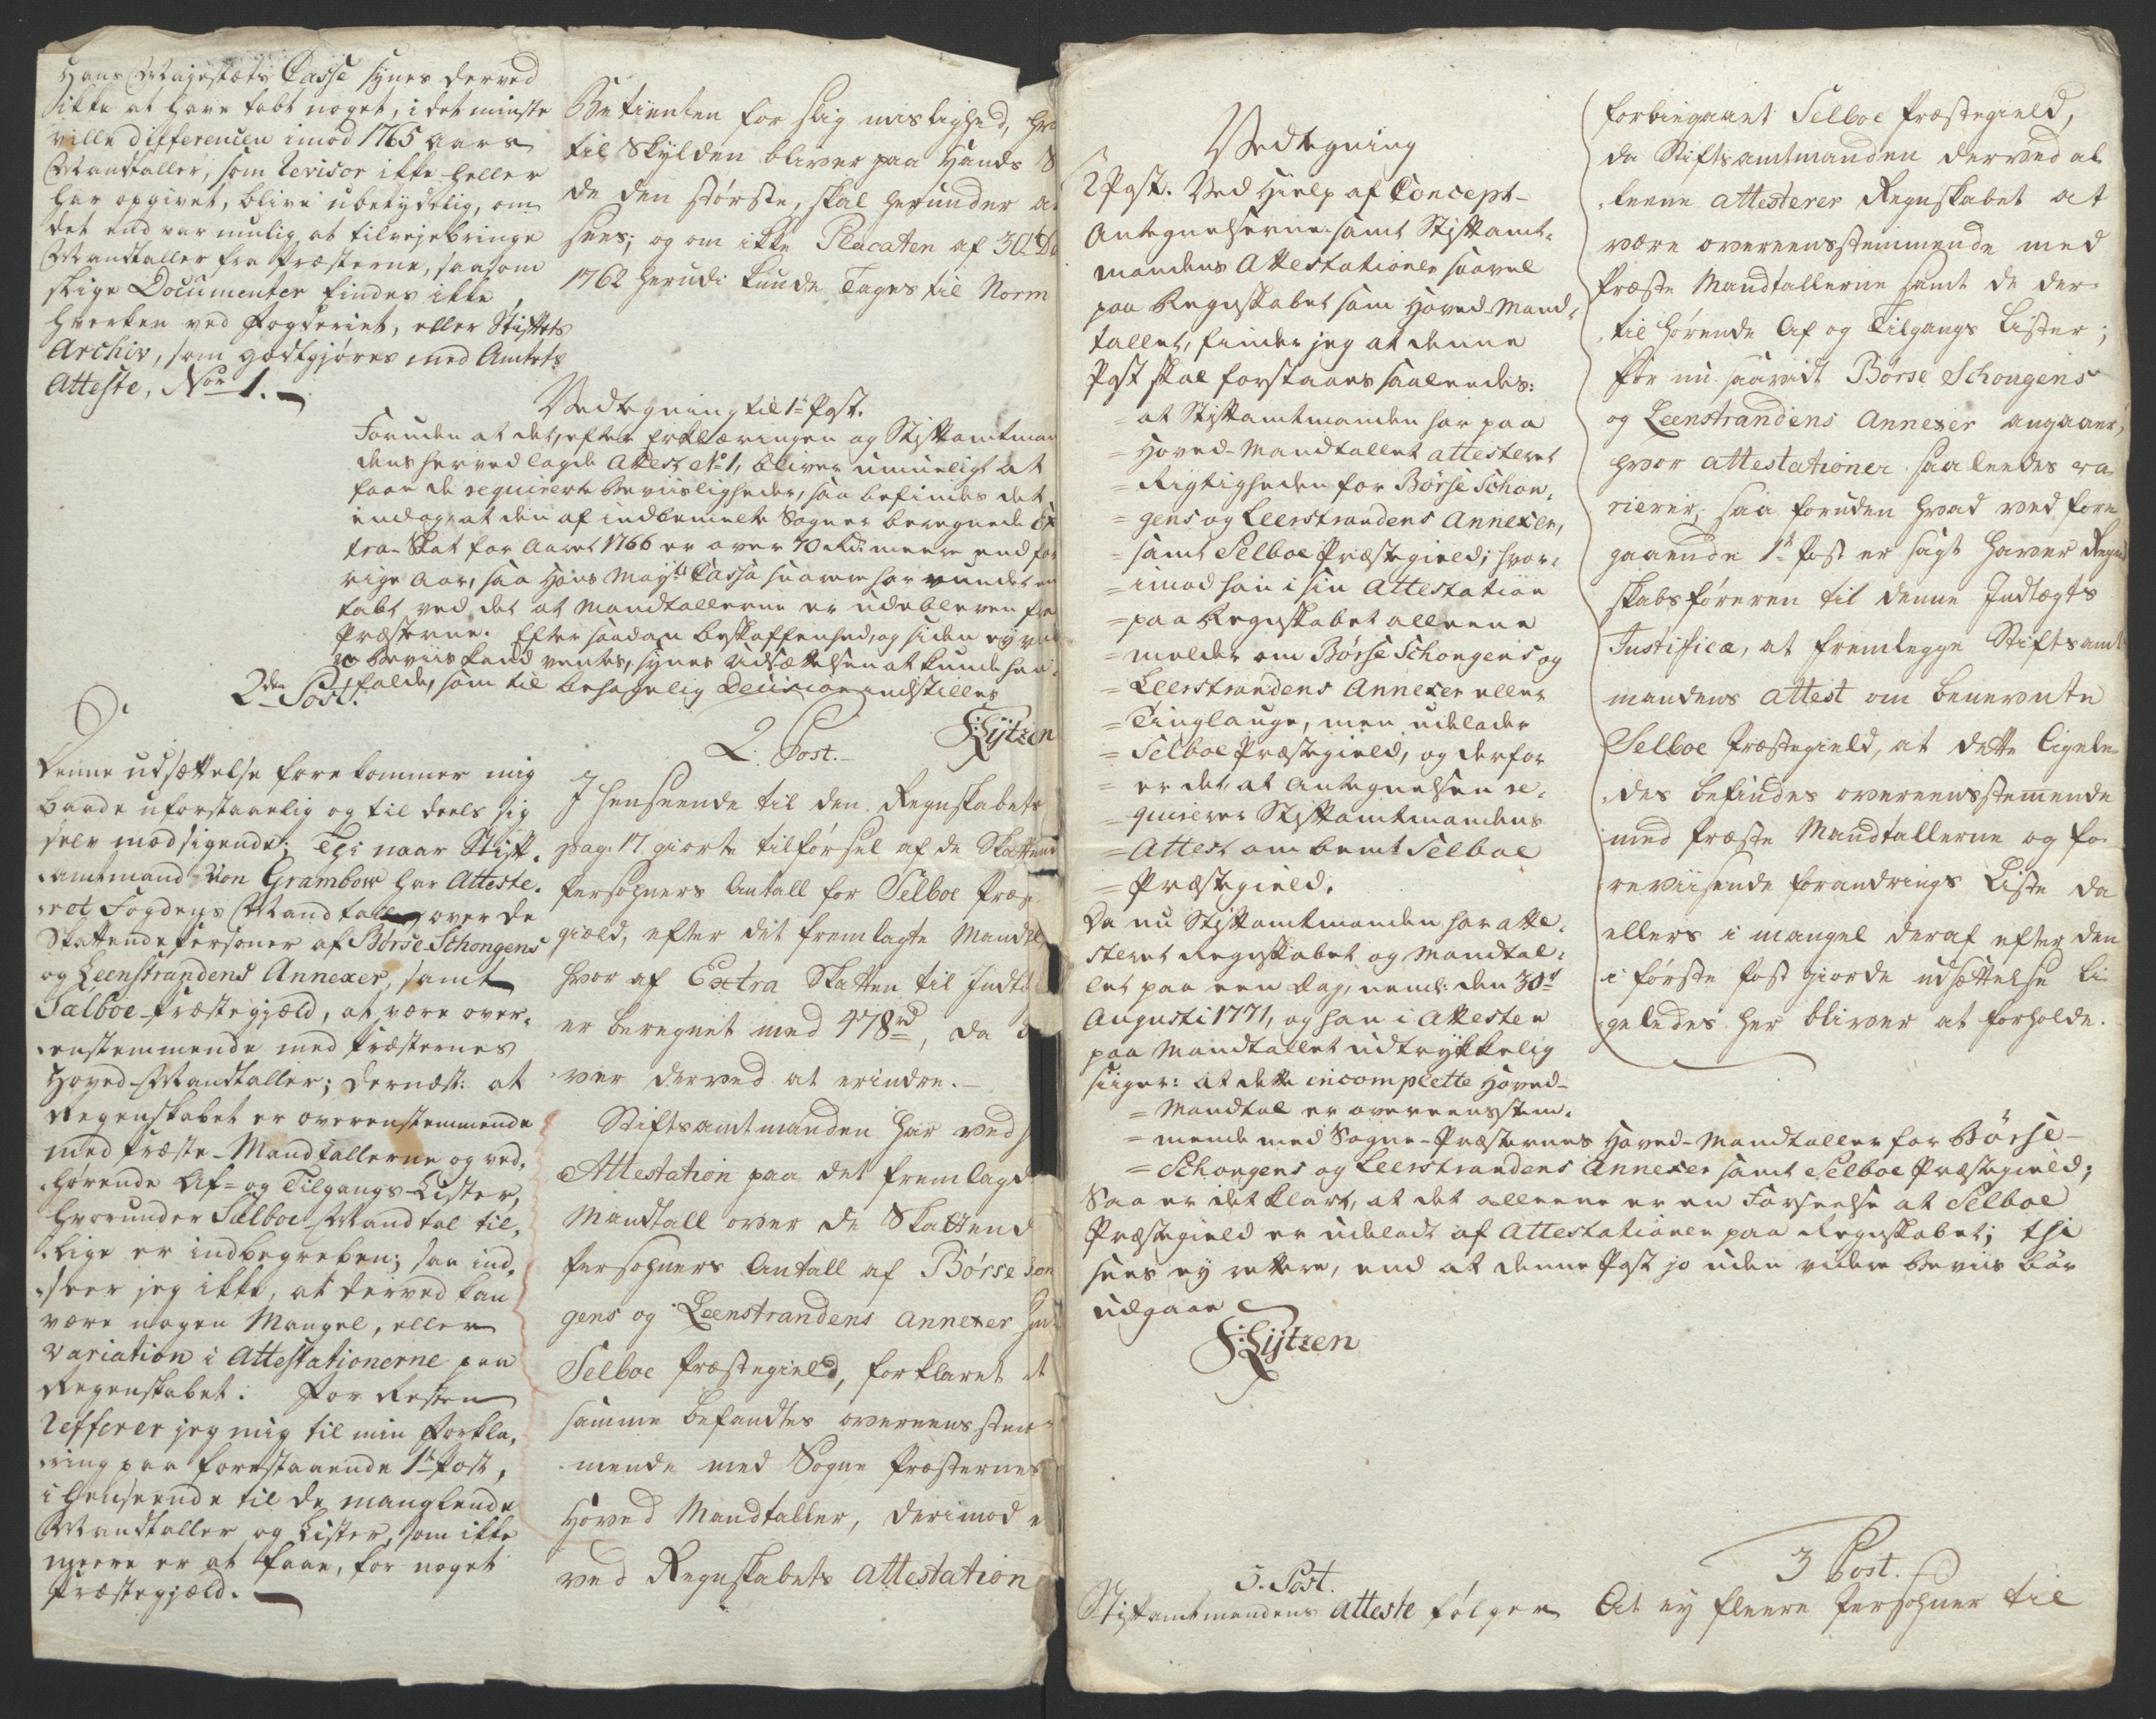 Hans Majestæts Casse synes derved
ikke at have tabt noget, i det minste
ville differencen imod 1765 aars
Mandtaller, som Revisor ikke heller
har opgivet, blive ubetydelig, om
det end var mulig at tilvejebringe
Mandtaller fra Præsterne, saasom
slige Documenter findes ikke,
hverken ved Fogderiet, eller Stiftets
Archiv, som godtgjøres med Amtets
Atteste, No 1.
Betienten for slig mislighed,
til Skylden bliver paa Hands
de den største, skal herunder
sees; og om ikke Placaten af 30te
1762 herudi kunde Tages til Norm
Vedtegning til 1te Post.
Foruden at det, efter Erklæringen og Stiftamtman
dens herved lagde Attest No 1, bliver umueligt at
faae de requirerte Beviisligheder, saa befindes det
endog, at den af indbemelte Sogner beregnede Ex
tra-Skat for Aaret 1766 er over 70 Rd. meere end for
rige Aar, saa Hans Mayts Cassa snarere har vundet en
tabt ved det at Mandtallerne er udeblevne fra
Præsterne. Efter saadan Beskaffenhed, og siden ey
Beviis kand ventes, synes Udsættelsen at kunde hen
falde, som til behagelig Decision indstilles
F Lytzen
2den Post.
Denne udsættelse forekommer mig
baade uforstaaelig og til deels sig
selv modsigende; Thi naar Stift-
amtmand von Grambow har Atteste-
ret Fogdens Mandtaller over de
Skattende Personer af Børse Schongens
og Leenstrandens Annexer, samt
Sælboe-Præstegjæld, at være over-
eenstemmende med Præsternes
Hoved-Mandtaller; dernæst: at
Regenskabet er overenstemmende
med Præste-Mandtallerne og ved-
hørende Af- og Tilgangs-Lister,
hvorunder Sælboe-Mandtal til-
lige er indbegreben; saa ind-
seer jeg ikke, at derved kan
være nogen Mangel, eller
variation i Attestationerne paa
Regenskabet. For Resten
Refferer jeg mig til min Forkla-
ring paa forestaaende 1te Post,
i Henseende til de manglende
Mandtaller og Lister, som ikke
meere er at faae, for noget
Præstegjæld.
2. Post.
I Henseende til den Regnskabets
pag: 17. giorte tilførsel af de Skattend
Persohners Antall for Selboe Præs
giæld, efter dit fremlagte Mandtal
hvor af Extra Skatten til Indtæ
er beregnet med 478 rd, da
ver derved at erindre.
Stiftsamtmanden har ved
Attestation paa det fremlagde
Mandtall over de Skattend
Persohners Antall af Børse Schon
gens og Leenstrandens Annexer
Selboe Præstegield, forklaret at
samme befandtes overeensstem-
mende med Sogne Præsternes
Hoved Mandtaller, derimod
ved Regnskabets Attestation
Vedtegning
2 Post. Ved Hielp af Concept-
Antegnelserne samt Stiftamt-
mandens Attestationer saavel
paa Regnskabet som Hoved-Mand-
tallet, finder jeg at denne
Post skal forstaaes saaledes:
= at Stiftamtmanden har paa
= Hoved-Mandtallet attesteret
= Rigtigheden for Børse Schon-
= gens og Leerstrandens Annexer,
= samt Selboe Præstegield; hvor-
= imod han i sin Attestation
= paa Regnskabet alleene
= melder om Børse Schongens og
= Leerstrandens Annexer eller
= Tinglauge, men udelader
= Selboe Præstegield, og derfor
= er det, at Antegnelsen re-
= quirerer Stiftamtmandens
= Attest om bemt Selboe
= Præstegield.
Da nu Stiftamtmanden har atte-
steret Regnskabet og Mandtal-
let paa een dag, neml: den 30te
Augusti 1771, og han i Attesten
paa Mandtallet udtrykkelig
siiger: at dette incomplette Hoved-
= Mandtal er overeensstem-
= mende med Sogne-Præsternes Hoved-Mandtaller for Børse-
= Schongens og Leerstrandens Annexer samt Selboe Præstegield;
Saa er det klart, at det alleene er en Forseelse at Selboe
Præstegield er udeladt af Attestationen paa Regnskabet; thi
sees ey rettere, end at denne Post jo uden videre Beviis bør
udgaae
F Lytzen
forbiegaaet Selboe Præstegield,
da Stiftsamtmanden derved al
leene attesterer Regnskabet at
være overeensstemmende med
Præste Mandtallerne samt de der-
til hørende Af og Tilgangs Lister;
For nu saavidt Børse Schongens
og Leenstrandens Annexer angaaer,
hvor attestationer saaleedes va-
rierer, saa foruden hvad ved fore
gaaende 1te Post er sagt haver Regn
skabsføreren til denne Indtægts
Justifica, at fremlegge Stiftsamt
mandens attest om benevnte
Selboe Præstegield, at dette ligele-
des befindes overeensstemende
med Præste Mandtallerne og fo-
reviisende forandrings Liste da
ellers i mangel deraf efter den
i første Post giorde udsættelse li-
geledes her bliver at forholde.
3. Post.
Stiftamtmandens Atteste følger
3 Post.
At ey fleere Persohner til